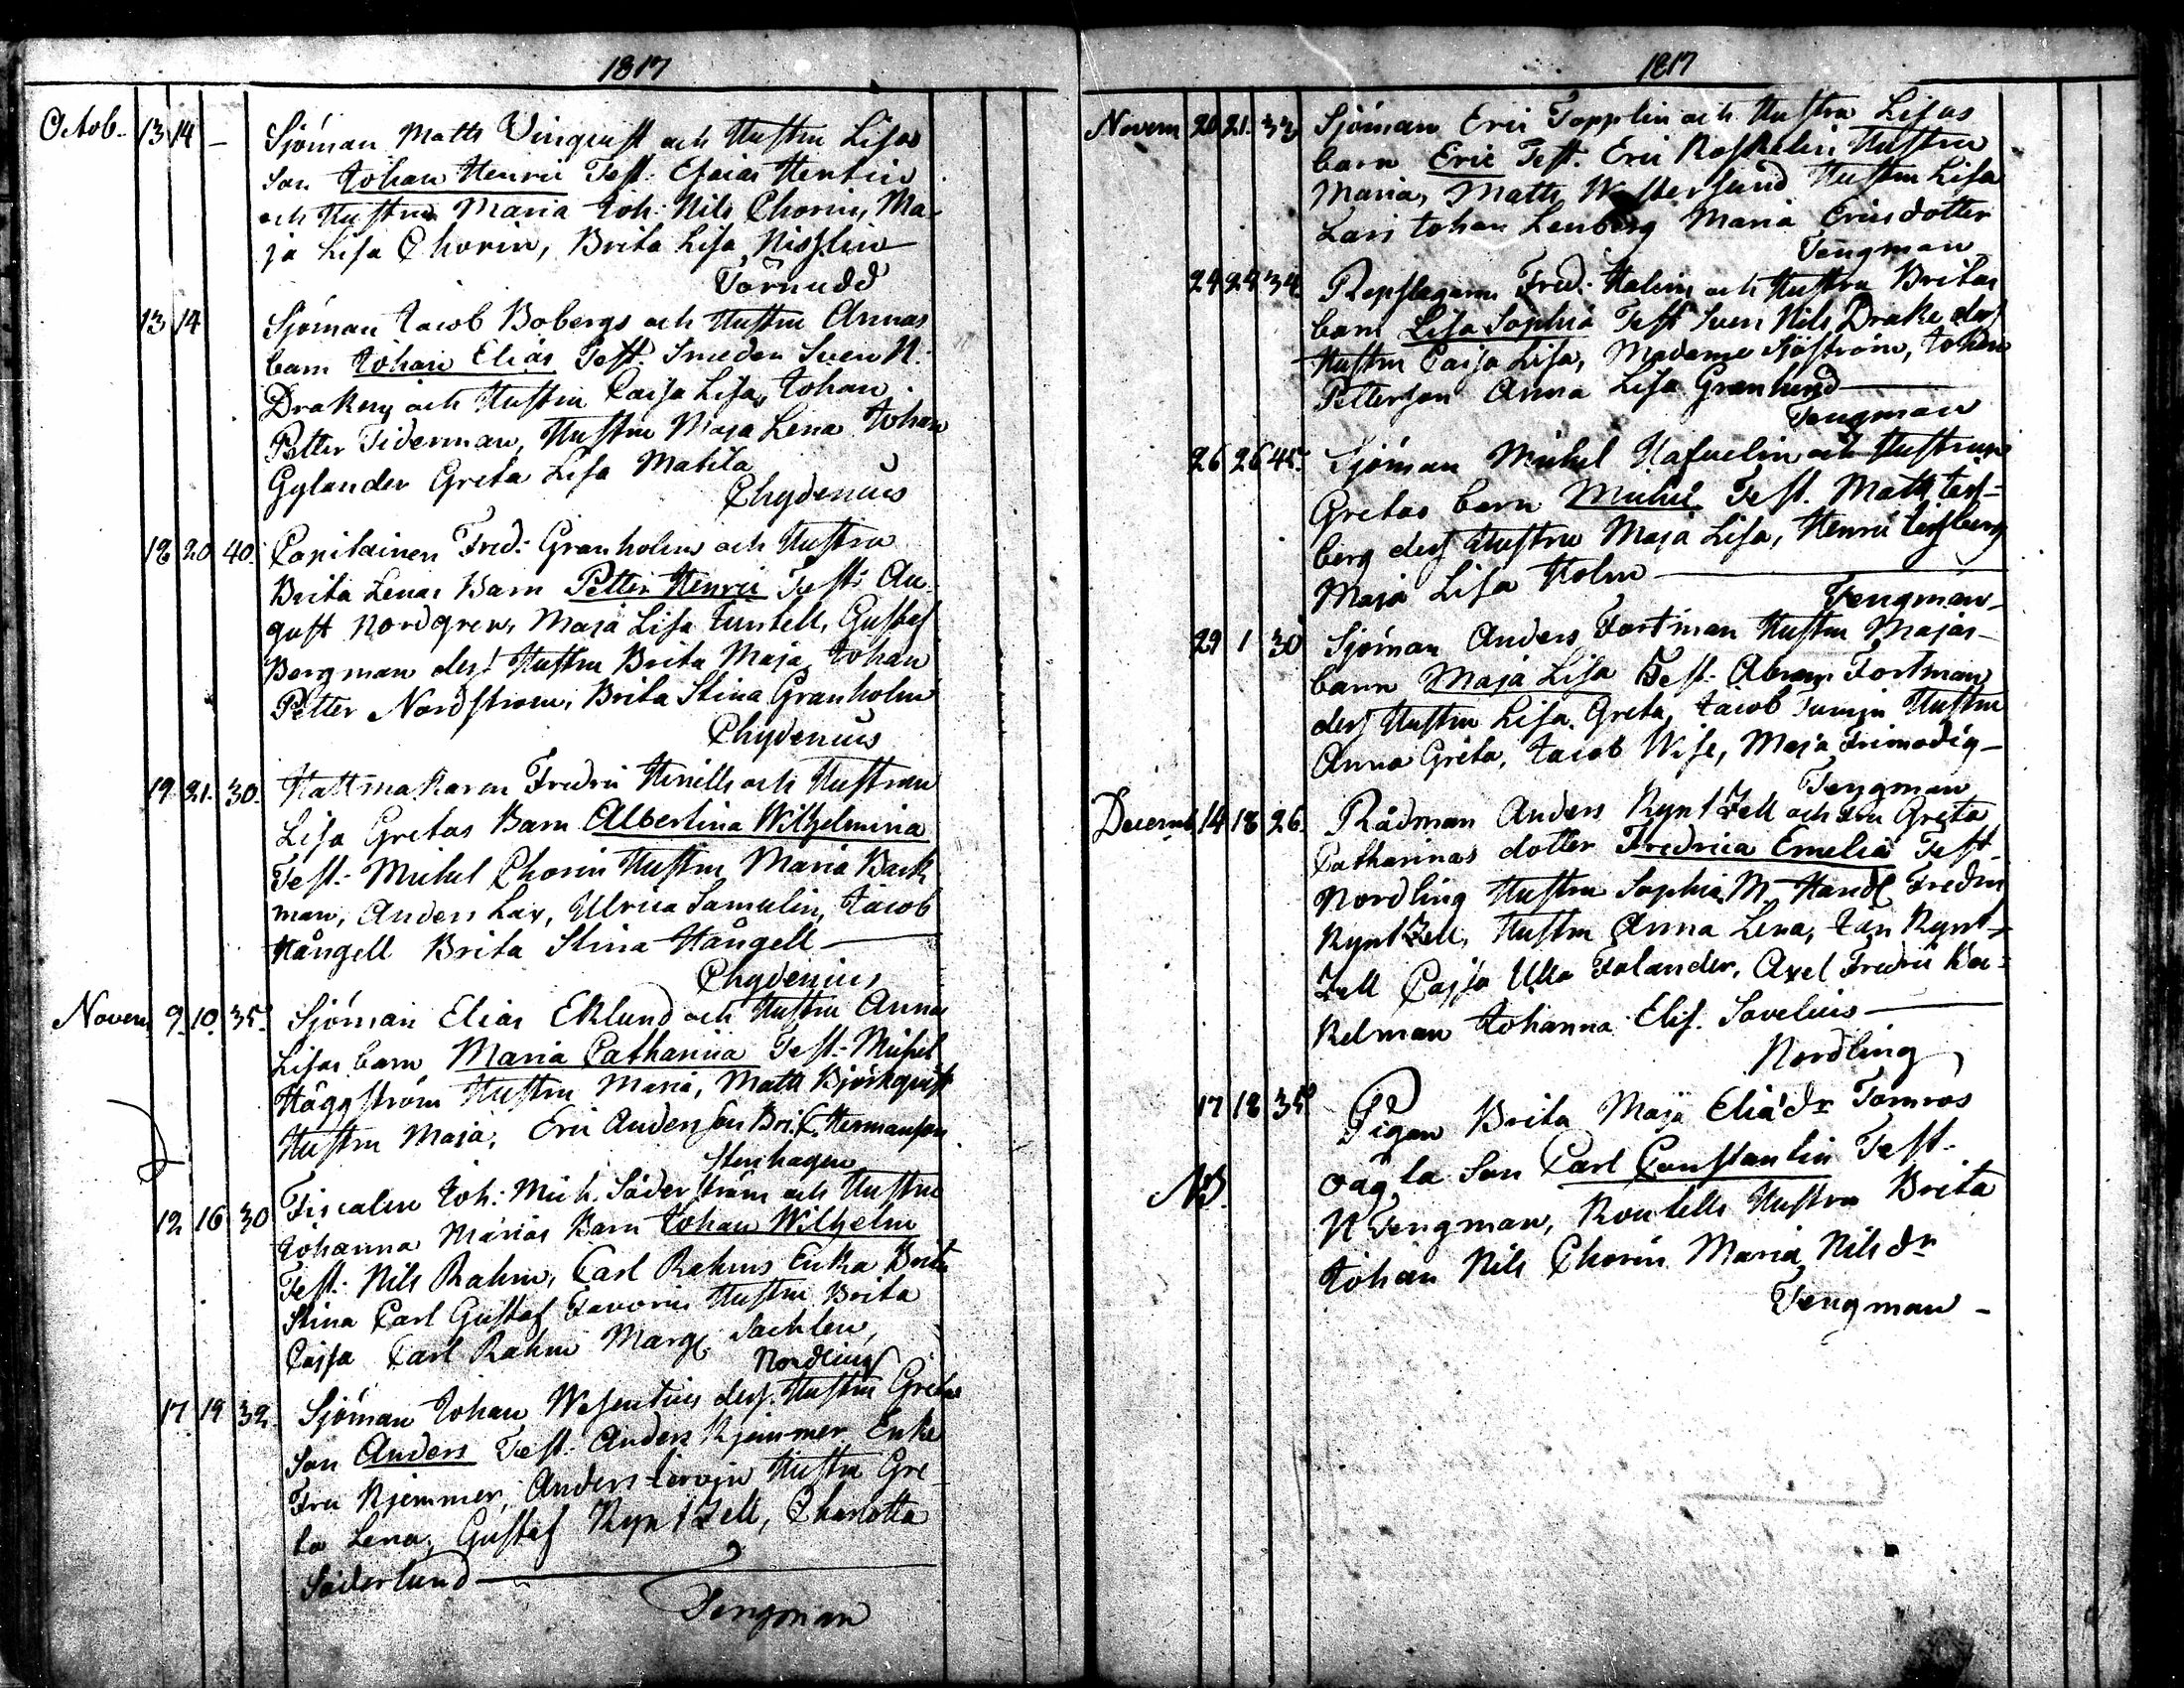 1817
Octob. 13 14 - Sjöman Matts Vinquist och Hustru Lisas
Son Johan Henric Test: Esaias Hentin
och Hustru Maria Joh: Nils Chorin, Ma-
ja Lisa Chorin, Brita Lisa Nisslin
Törnudd
13 14 Sjöman Jacob Bobergs och Hustru Annas
barn Johan Elias Test. Smeden Sven N:
Drakeny och Hustru Caisa Lisa, Johan
Petter Tiderman, Hustru Maja Lena Johan
Gylander Greta Lisa Matila
Chydenius
18 20 40. Capitainen Fred: Granholms och Hustru
Brita Lenas Barn Petter Henric Test: Au-
gust Nordgren, Maja Lisa Juntell, Gustaf
Bergman dess Hustru Brita Maja, Johan
Petter Nordström, Brita Stina Granholm
Chydenius
19 21. 30. Hattmakaren Fredric Henells och Hustrun
Lisa Gretas Barn Albertina Wilhelmina
Test: Michel Chorin Hustru Maria Back
man, Anders Lax, Ulrica Samulin, Jacob
Hångell Brita Stina Hångell
Chydenius
Novem 9. 10. 35. Sjöman Elias Eklund och Hustru Anna
Lisas barn Maria Catharina Test: Michel
Häggström Hustru Maria, Matts Björkqvist
Hustru Maja, Eric Andersson Bri. C. Hermanson
Stenhagen
12 16 30 Fiscalen Joh: Mich. Söderström och Hustru
Johanna Marias Barn Johan Wilhelm
Test: Nils Rahm, Carl Rahms Enka Brita
Stina Carl Gustaf Favorin Hustru Brita
Cajsa Carl Rahm Marg. Sachlen,
Nordling
17 19 32. Sjöman Johan Wesentius dess Hustru Gretas
Son Anders Test: Anders Kjemmer Enke
Fru Kjemmer, Anders Hustru Gre-
ta Lena, Gustaf Kyntzell, Charlotta
Söderlund
Tengman
1817
Novem 20 21. 33 Sjöman Eric Topplin och Hustru Lisas
barn Eric Test. Eric Roskelin Hustru
Maria, Matts Westerlund Hustru Lisa
Lars Johan Lenberg Maria Ericsdotter
Tengman
24 24 34 Repslagaren Fred: Halin och Hustru Britas
barn Lisa Sophia Test Sven Nils Drake dess
Hustru Caisa Lisa, Madame Sjöström, Johan
Petterson Anna Lisa Granlund
Tengman
26 26 45. Sjöman Michel Hafvelin och Hustruns
Gretas barn Michel Test. Matts
berg dess Hustru Maja Lisa, Henric
Maja Lisa Holm
Tengman
29 1 30 Sjöman Anders Fortman Hustru Majas
barn Maja Lisa Test: Abram Fortman
dess Hustru Lisa Greta, Jacob Hustru
Anna Greta, Jacob Wise, Maja Frimodig
Tengman
Decemb 14 18 26. Rådman Anders Kyntzell och Fru Greta
Catharinas dotter Fredrica Emelia Test
Nordling Hustru Sophia M. Handl Fredric
Kyntzell, Hustru Anna Lena, Jan Kynt-
zell Cajsa Ulla Falander, Axel Fredric
kelman Johanna Elis. Savelius
Nordling
17 18 35 Pigan Brita Maja Elia dr Tamros
NB. oägta Son Carl Constantin Test.
N Tengman, Kontells Hustru Brita
Johan Nils Chorin Maria Nils dr
Tengman